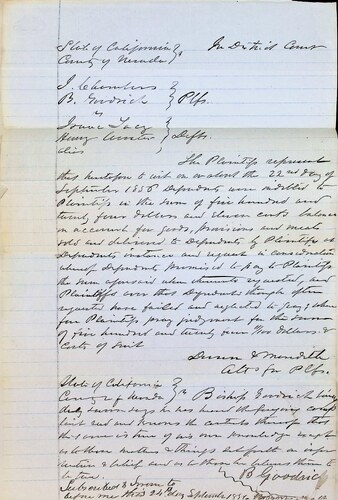 State of California } In District Court
County of Nevada
J. Chambers
B. Goodrich } Plfs.
vs
Isaac Lacy
Henry } Defts.
alias
The Plaintiffs represent
that heretofore to wit on or about the 22nd day of
September 1856 Defendants were indebted to
Plaintiffs in the sum of five hundred and
twenty four dollars and eleven cents balance
on account for goods, provisions and meats
sold and delivered to Defendants by Plaintiffs at
Defendants instance and request in consideration
whereof Defendants promised to pay to Plaintiffs
the sum aforesaid when thereunto requested, and
Plaintiffs aver that Defendants though often
requested have failed and neglected to pay, where
fore Plaintiffs pray judgment for the sum
of five hundred and twenty four 11/100 dollars &
costs of suit
& Meredith
Atts for Plfs.
State of California }
County of Nevada } ss Bishop Goodrich being
duly sworn says he has heard the foregoing comp
laint read and knows the contents thereof that
the same is true of his own knowledge except
as to those matters & things set forth on infor
mation & belief and as to those he believes them to
be true.
B Goodrich
Subscribed & Sworn to
before me this 24th day September 1856